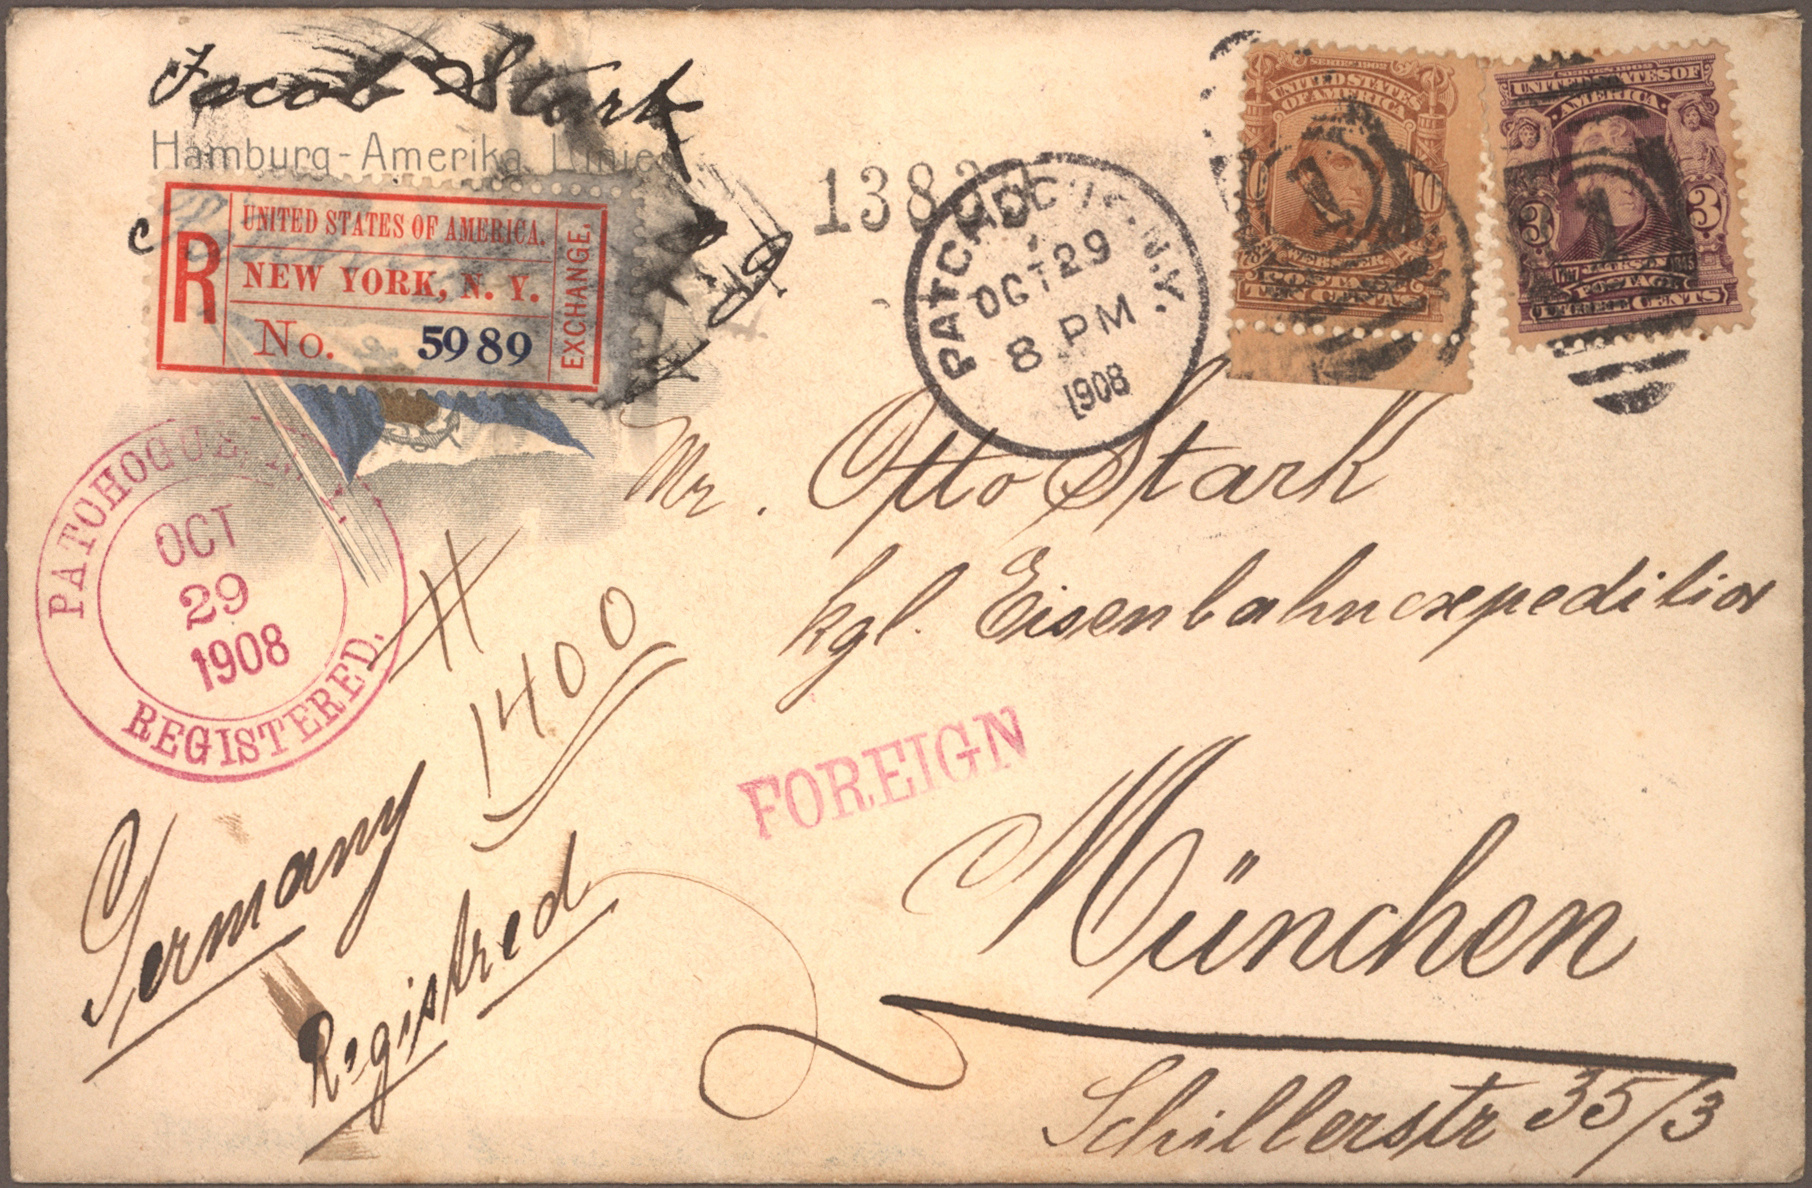 Jacob Stark
Hamburg-Amerika Linie
R
UNITED STATES OF AMERICA.
NEW YORK, N. Y.
No. 5989
EXCHANGE.
PATCHOGUE, N.Y.
OCT 29
8 PM
1908
SERIES 1902
UNITED STATES
OF AMERICA
10
WEBSTER
POSTAGE
TEN CENTS
SERIES 1902
UNITED STATES OF
AMERICA
3 3
JACKSON
1845
POSTAGE
THREE CENTS
1
1
PATCHOGUE, N.Y.
OCT
29
1908
REGISTERED.
Mr. Otto Stark
kgl. Eisenbahnexpeditior
#
1400
FOREIGN
Germany
Registred
München
Schillerstr 35/3